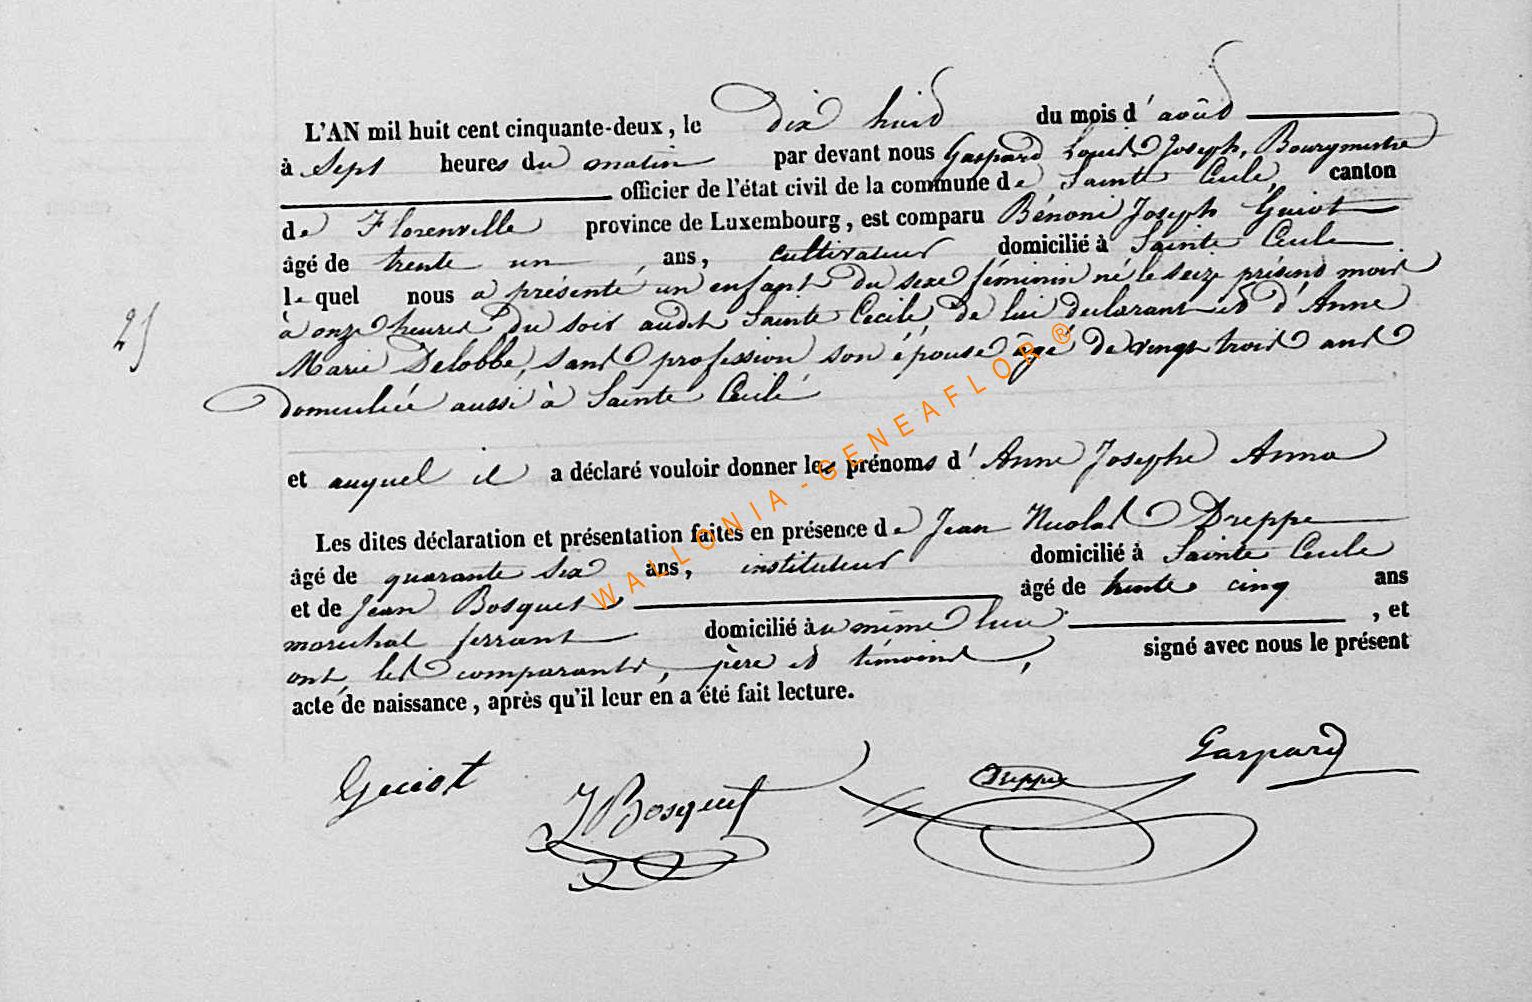 L'AN mil huit cent cinquante-deux, le dix huit du mois d'août
à Sept heures du matin par devant nous Gaspard Louis Joseph, Bourgmestre
officier de l'état civil de la commune de Sainte Cecile, canton
de Florenville province de Luxembourg, est comparu Bénoni Joseph Guiot
âgé de trente un ans, cultivateur domicilié à Sainte Cecile
lequel nous a présenté un enfant du sexe féminin né le seize présent mois
à onze heures du soir audit Sainte Cecile de lui déclarant et d'Anne
Marie Delobbe, sans profession son épouse âgé de vingt trois ans
domiciliée aussi à Sainte Cecile
25
et auquel il a déclaré vouloir donner les prénoms d'Anne Josephe Anna
Les dites déclaration et présentation faites en présence de Jean Nicolas Dreppe
âgé de quarante six ans, instituteur domicilié à Sainte Cecile
et de Jean Bosquet âgé de trente cinq ans
marechal ferrant domicilié au même lieu, et
ont les comparants, père et témoins, signé avec nous le présent
acte de naissance, après qu'il leur en a été fait lecture.
Guiot
J Bosquet
Dreppe
Gaspard
WALLONIA - GENEAFLOR ®